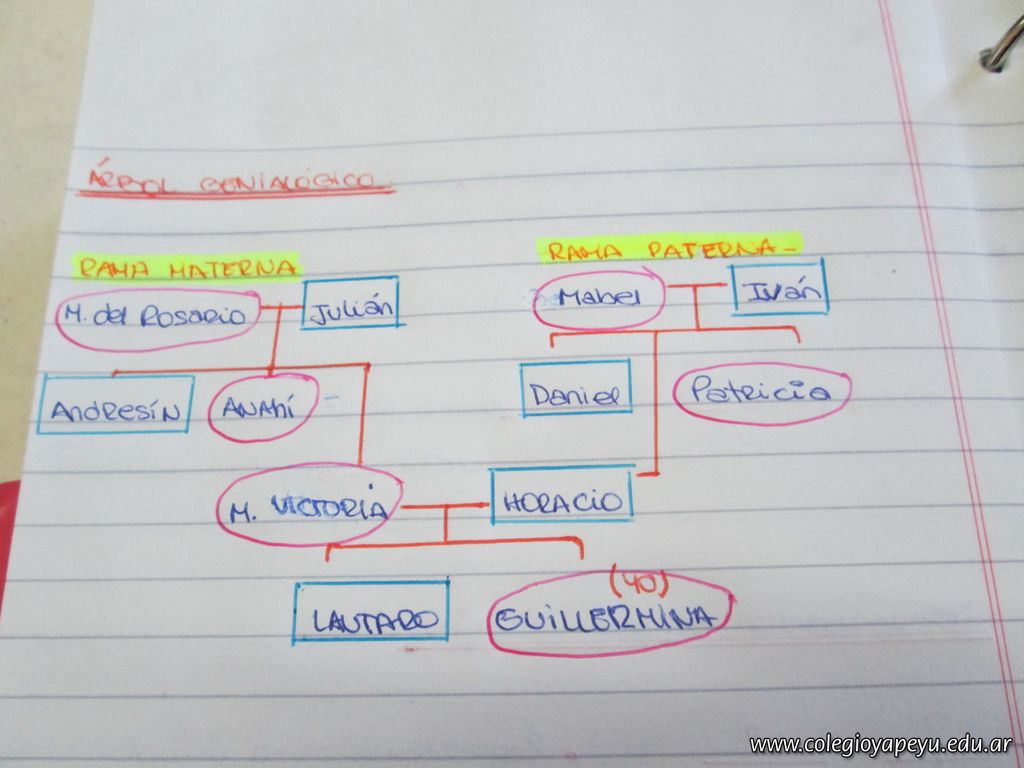 ÁRBOL GENIALÓGICO
RAMA MATERNA
RAMA PATERNA-
M. del Rosario
Julián
Mabel
Iván
ANDRESÍN
ANAhí
Daniel
Patricia
M. VICTORIA
HORACIO
(YO)
LAUTARO
GUILLERMINA
www.colegioyapeyu.edu.ar